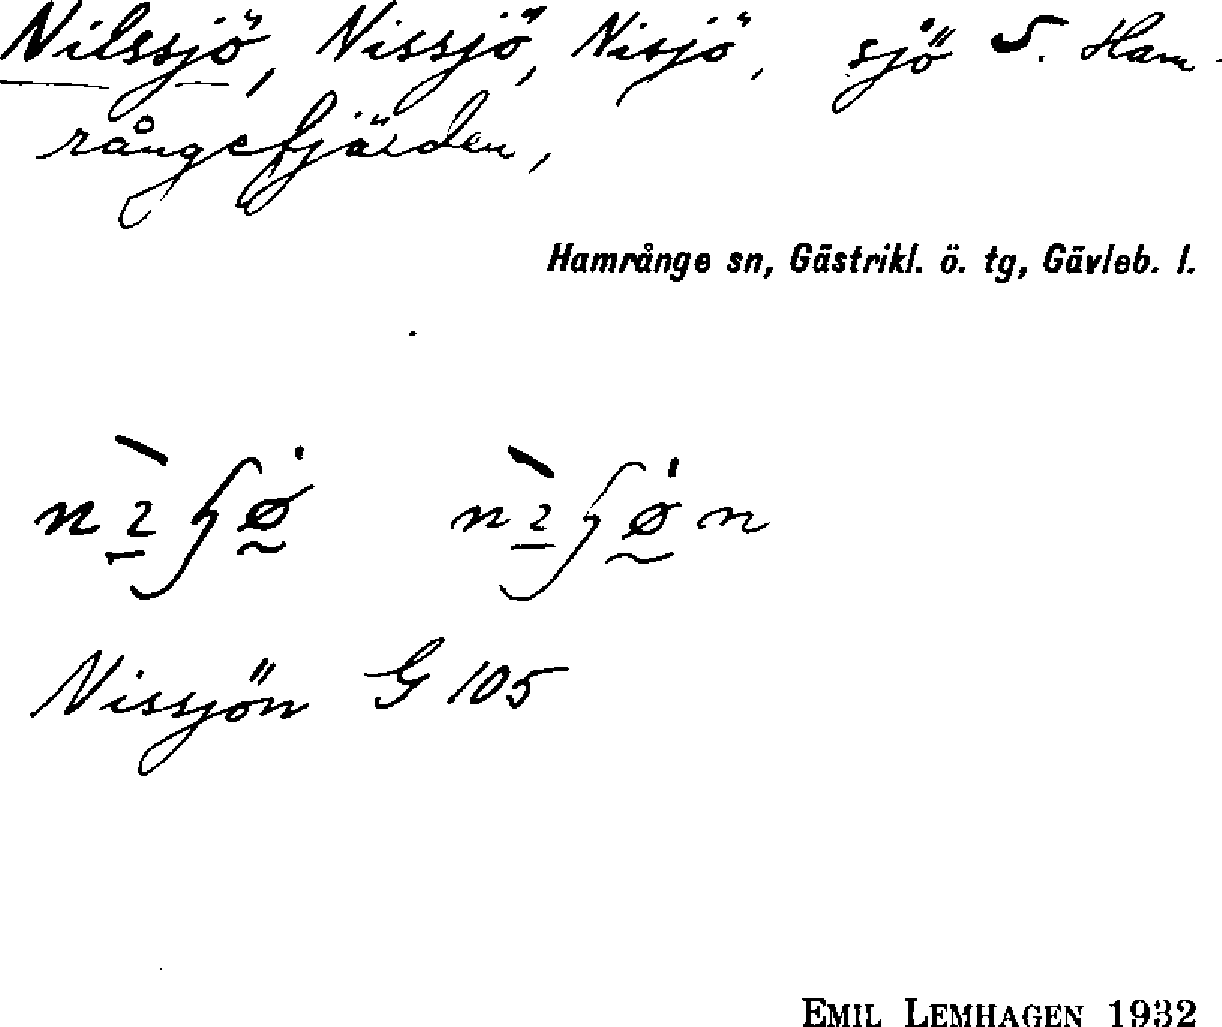 Nilssjö, Nissjö, Nisjö, sjö S. Ham-
rångefjärden,
Hamrånge sn, Gästrikl. ö. tg, Gävleb. l.
Nissjön G 105
EMIL LEMHAGEN 1932